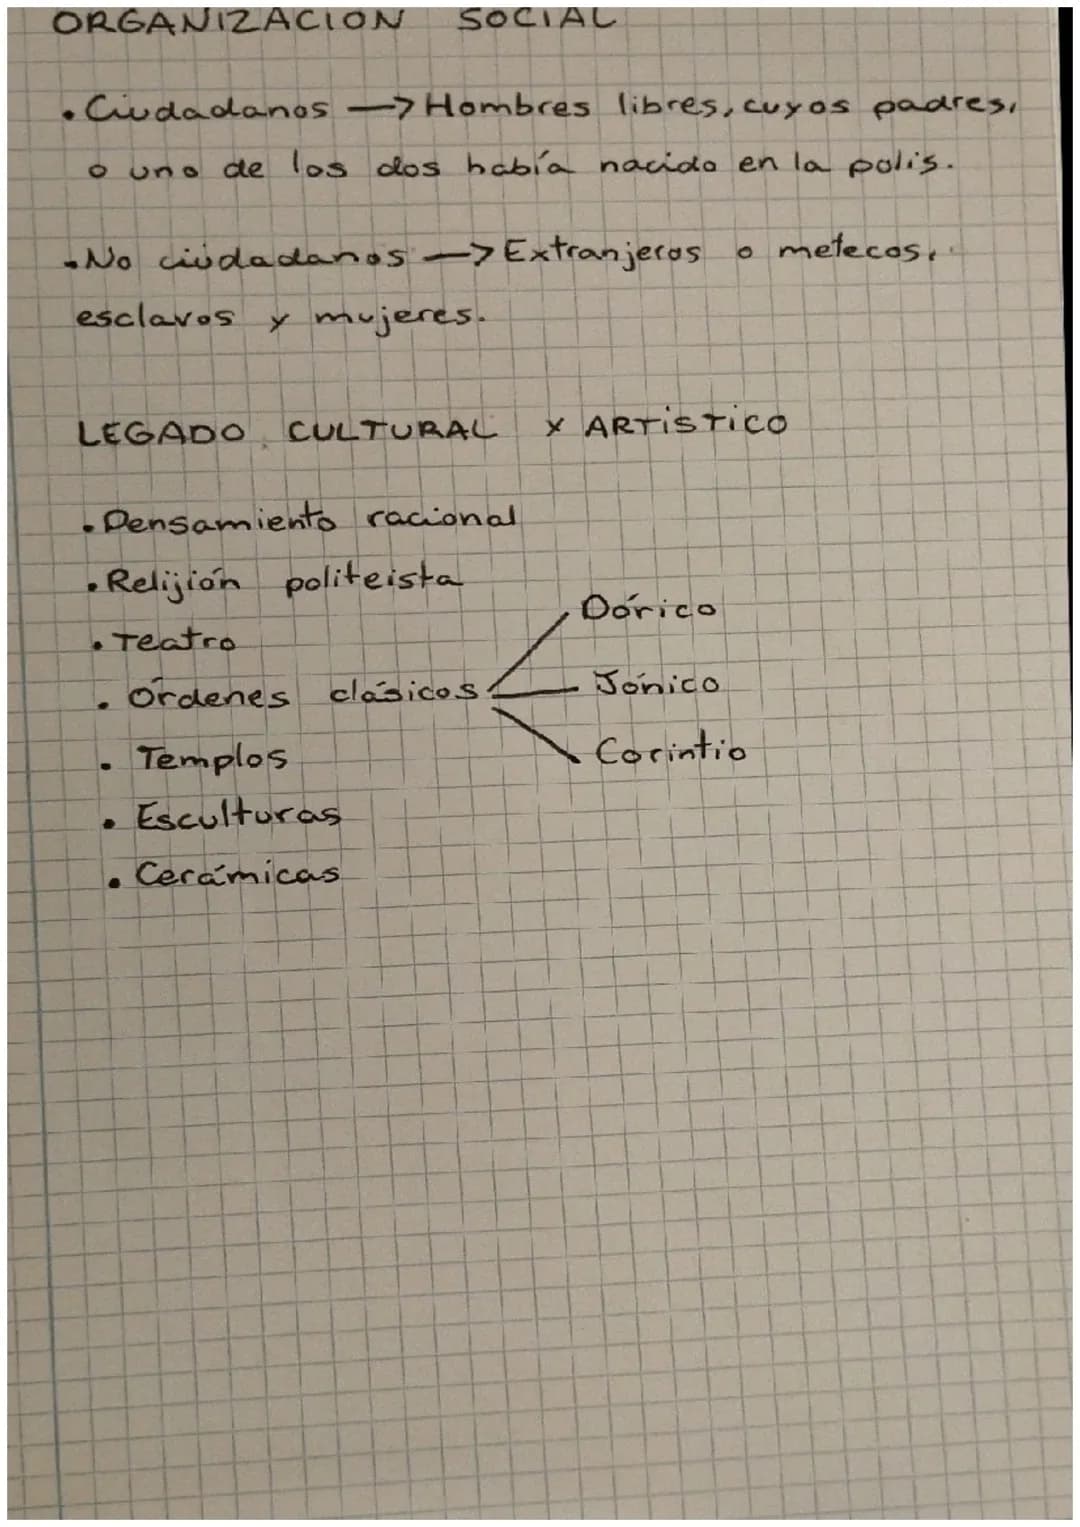 ORGANIZACION SOCIAL
• Ciudadanos —> Hombres libres, cuyos padres,
o uno de los dos había nacido en la polis.
• No ciudadanos —> Extranjeros o metecos,
esclavos y mujeres.
LEGADO CULTURAL Y ARTÍSTICO
• Pensamiento racional
• Relijión politeista
• Teatro
• Órdenes clásicos
Dórico
Jónico
Corintio
• Templos
• Esculturas
• Cerámicas